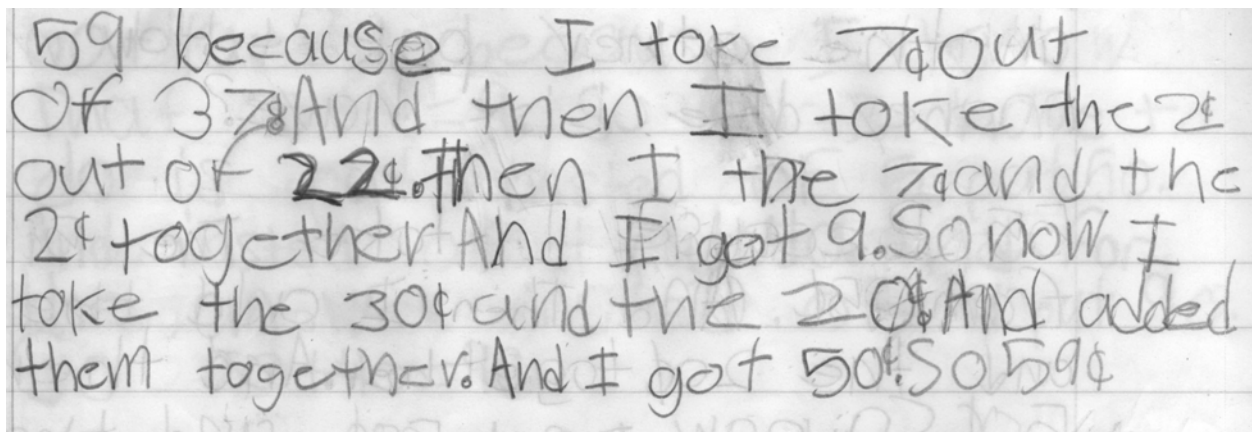 59 because I toke 7¢ out
of 37¢ And then I toke the 2¢
out of 22¢. Then I the 7¢ and the
2¢ together And I got 9. So now I
toke the 30¢ and the 20¢ And added
them together. And I got 50¢. So 59¢